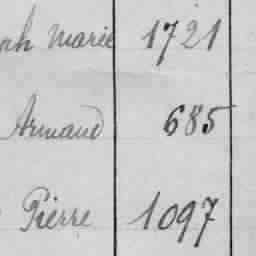 Marie 1721
Armand 685
Pierre 1097